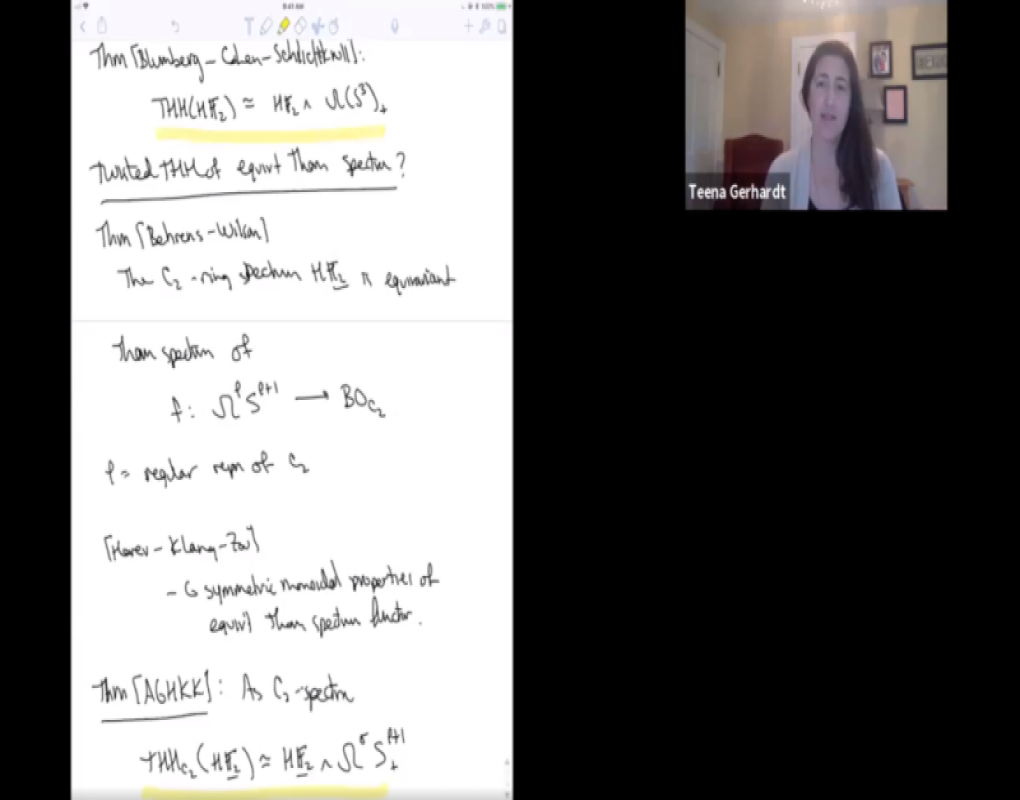 Thm [Blumberg-Cohen-Schlichtkrull]:
THH(HF₂) ≃ HF₂ ∧ Ω(S³)₊
twisted THH of equivt Thom spectra?
Thm [Behrens-Wilson]
The C₂-ring spectrum HF₂ is equivariant
Thom spectrum of
f: Ω^ρ S^{ρ+1} → BO_{C₂}
ρ = regular repn of C₂
[Horev-Klang-Zou]
- G symmetric monoidal properties of
equivt Thom spectrum functor.
Thm [AGHKK]: As C₂-spectra
THH_{C₂}(HF₂) ≃ HF₂ ∧ Ω^σ S^{ρ+1}₊
Teena Gerhardt